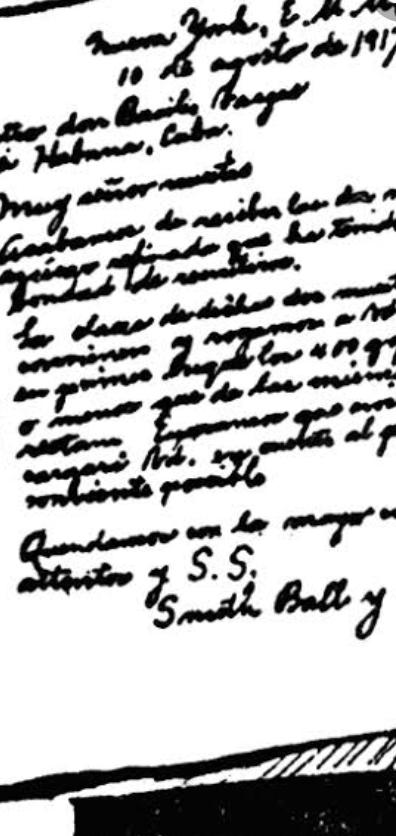 Nueva York, E.
10 de agosto de 1917
don Basilio Vargas
Habana, Cuba.
Muy señor nuestro
Acabamos de recibir las dos
refinado que ha tenido
bondad de remitirnos.
La clase de dichas dos
y rogamos a Vd.
su primer buque los 400
o menos que de las
restan. Esperamos que
cargará Vd. en cuenta al
posible
Quedamos con la mayor
attentos y S. S.
Smith Ball y